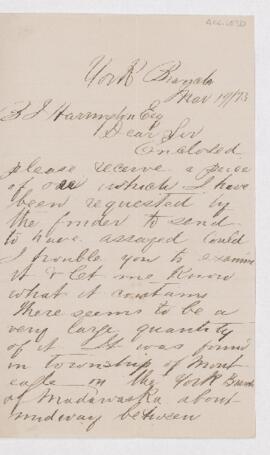 York Branch
Mar 19/73
B J Harrington Esq
Dear Sir
Enclosed
please receive a piece
of ore which I have
been requested by
the finder to send
to have assayed could
I trouble you to examine
it & let me know
what it contains
there seems to be a
very large quantity
of it. It was found
in township of Mont
eagle on the York Branch
of Madawaska about
midway between